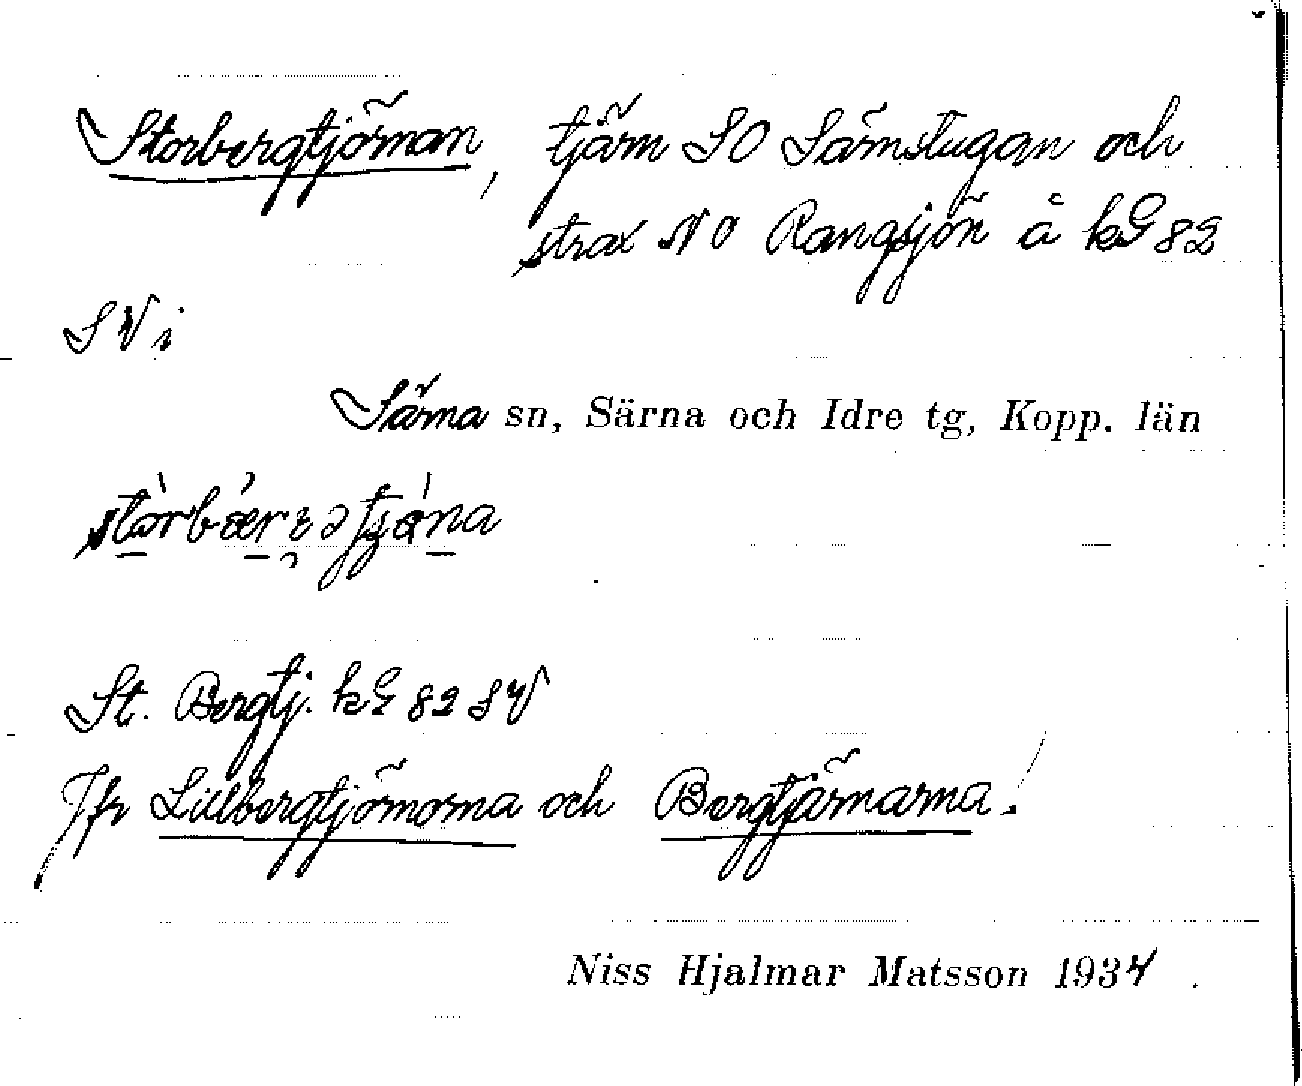 Storbergtjörnan, tjärn SO Särnstugan och
strax NO Rangsjön å kG 82
SV i
Särna sn, Särna och Idre tg, Kopp. län
St. Bergtj. kG 82 SV
Jfr Lillbergtjörnorna och Bergtjärnarna.
Niss Hjalmar Matsson 1934.